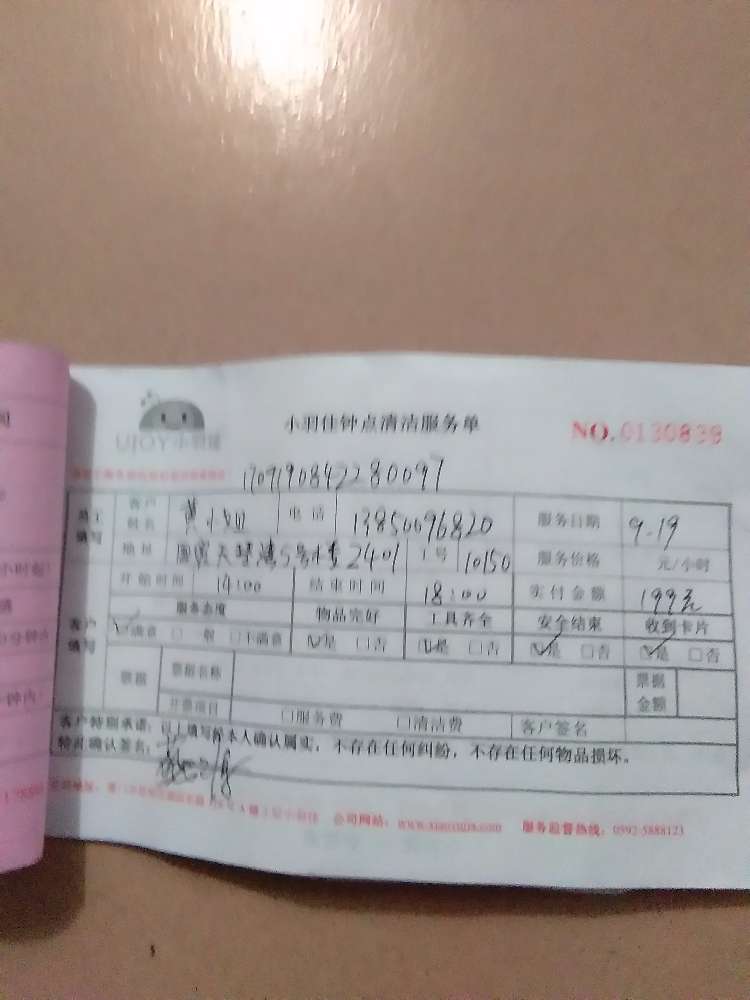 UJOY
小羽佳钟点清洁服务单
NO.0130839
1709190842280097
员工填写 客户姓名 黄小姐 电话 13850096820 服务日期 9.19
地址 5号楼2401 工号 10150 服务价格 元/小时
开始时间 14:00 结束时间 18:00 实付金额 199元
客户填写 服务态度 物品完好 工具齐全 安全结束 收到卡片
☑满意 □一般 □不满意 ☑是 □否 ☑是 □否 ☑是 □否 ☑是 □否
票据 票据名称 票据金额
开票项目 □服务费 □清洁费 客户签名
客户特别承诺：以上填写经本人确认属实，不存在任何纠纷，不存在任何物品损坏。
特此确认签名：
公司网站： 服务监督热线：0592-5888123